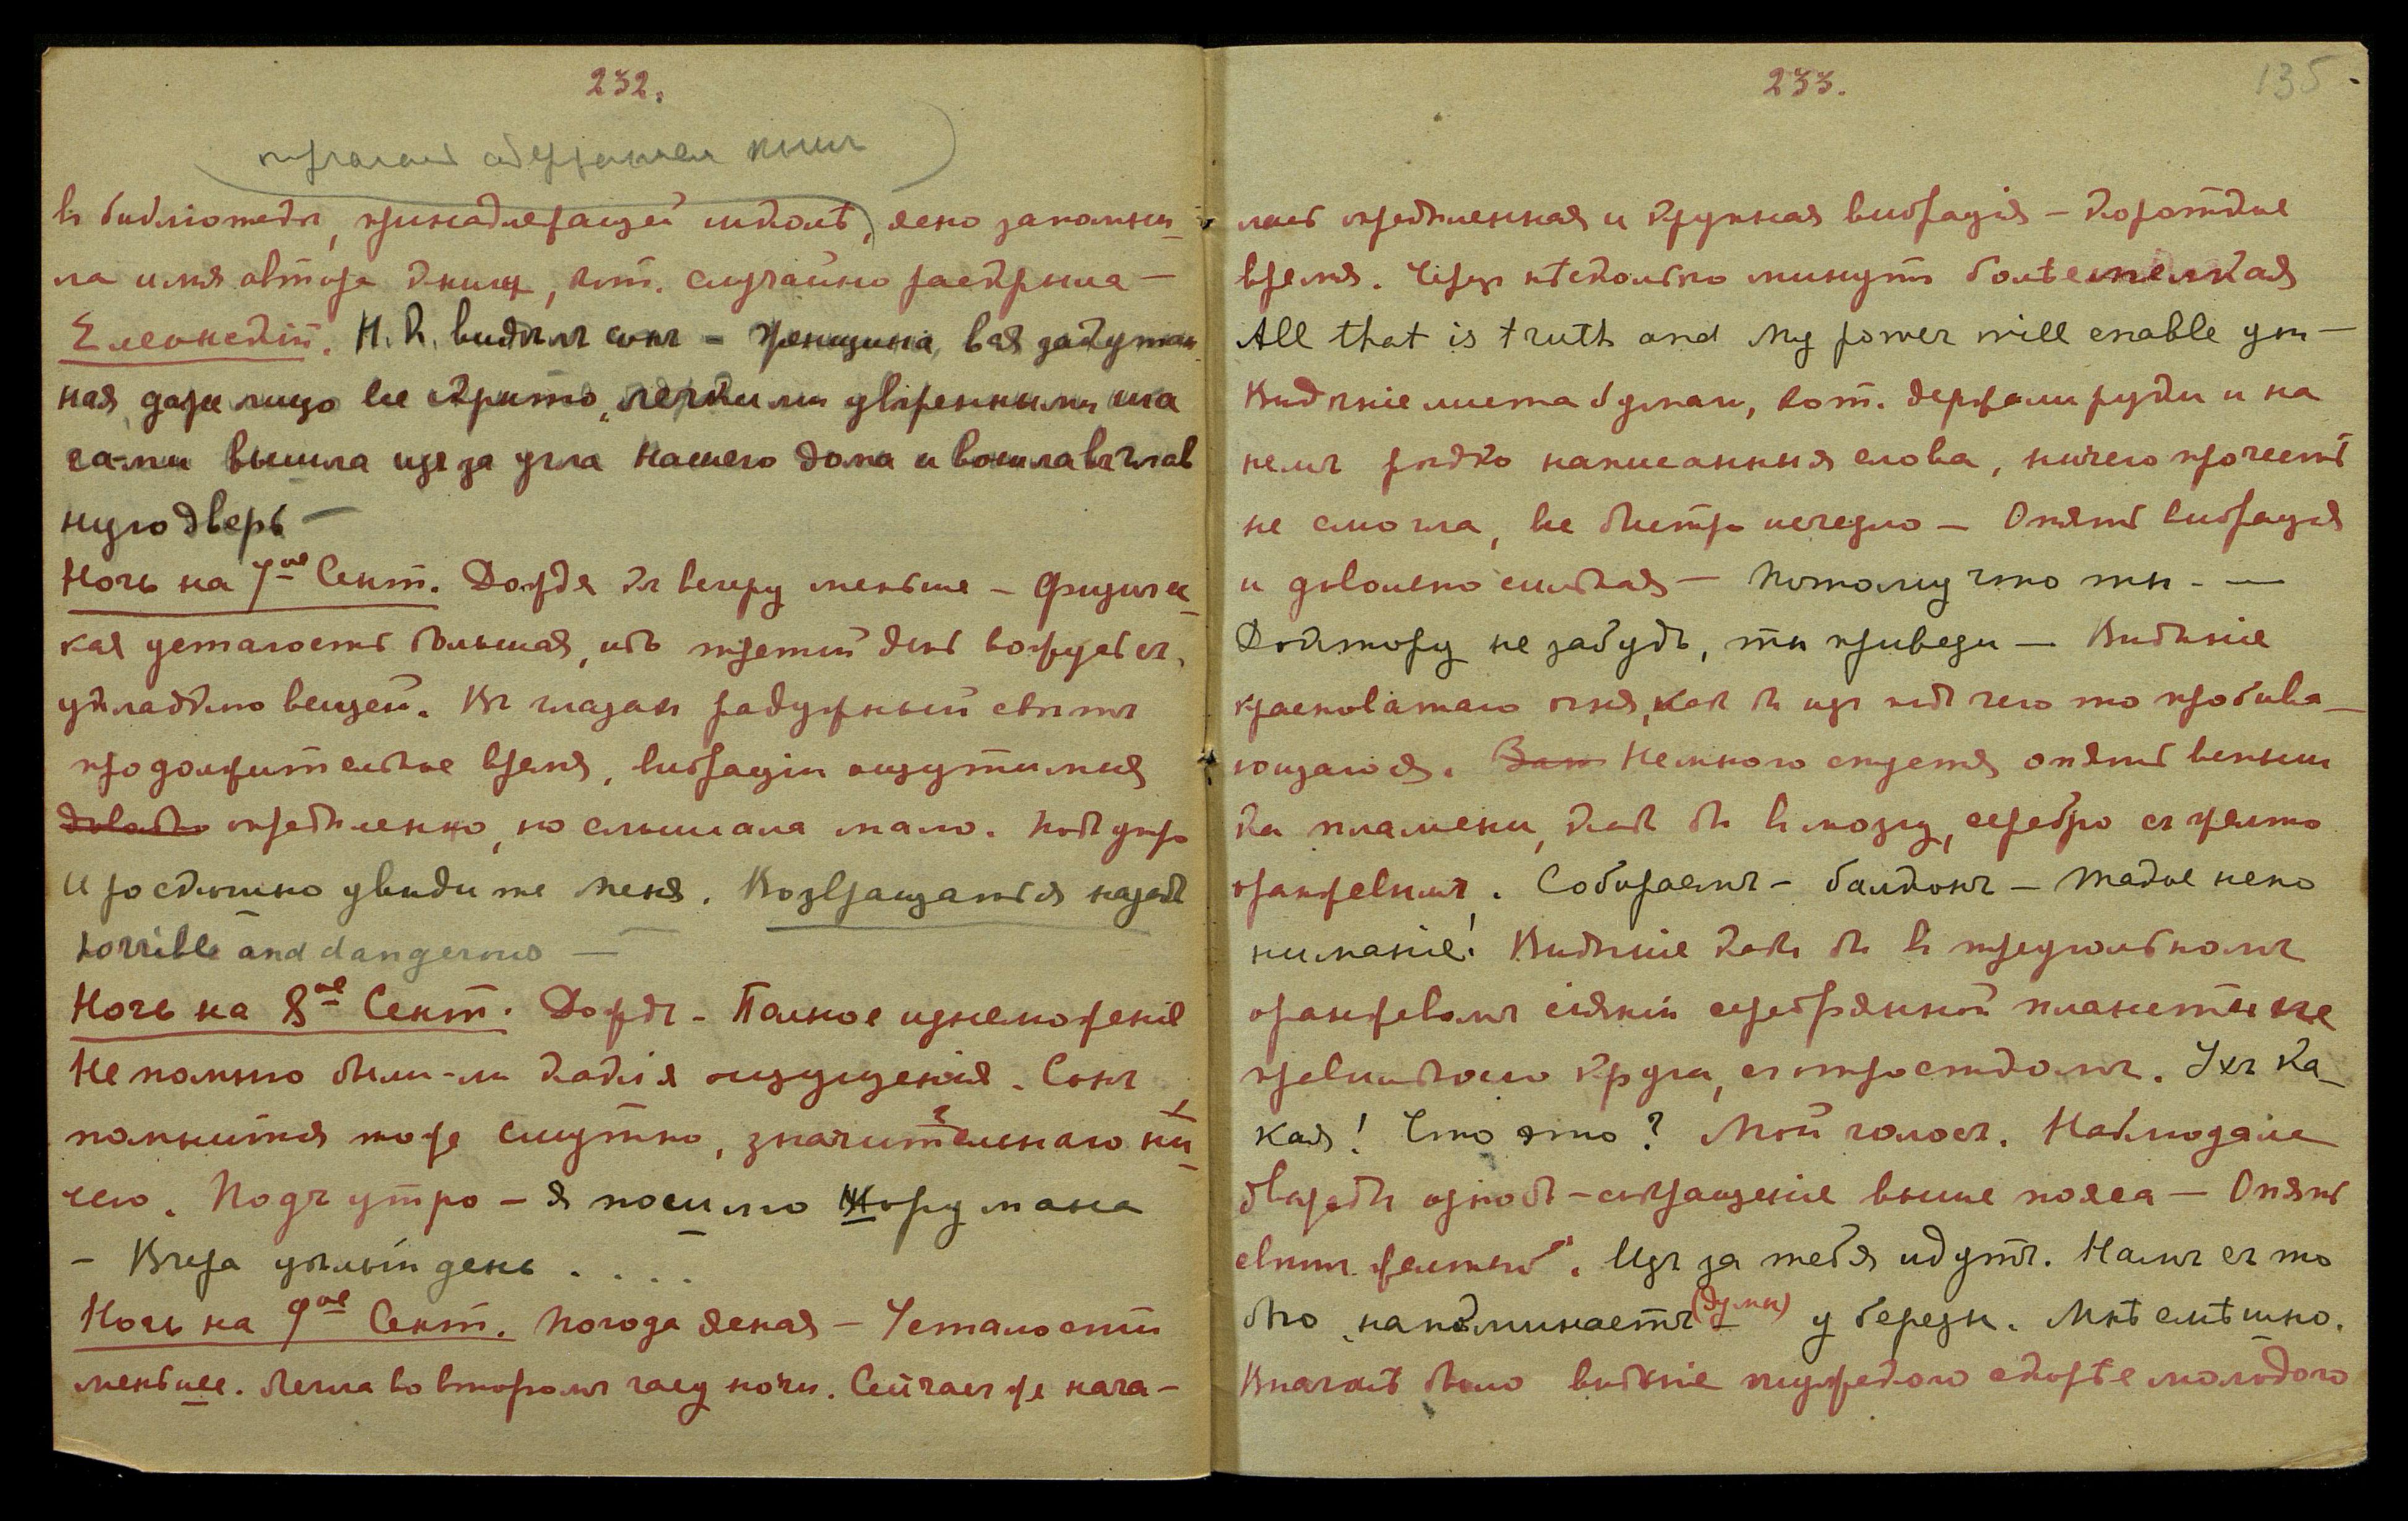 232.
въ библіотекѣ, принадлежащей школѣ, ясно запомни-
ла имя автора книги, кот. случайно раскрыла —
Н. К. видѣлъ сонъ – женщина, вся закутан
ная, даже лицо ее скрыто, легкими увѣренными ша
гами вышла изъ за угла нашего дома и вошла въ глав
ную дверь —
Ночь на 7ое Сент. Дождя къ вечеру меньше – Физичес-
кая усталость большая, ибо третій день вожусь съ
укладкою вещей. Въ глазах радужный свѣтъ
продолжительное время, вибраціи ощутимыя
опредѣленно, но слышала мало. Подъ утро
И роскошно увидите меня. Возвращаться назадъ
horrible and dangerous —
Ночь на 8ое Сент. Дождь – Полное изнеможеніе
Не помню были-ли какія ощущенія. Сонъ
помнится тоже смутно, значительнаго ни-
чего. Подъ утро – я посылаю Норумана
– Вчера цѣлый день . . . .
Ночь на 9ое Сент. Погода ясная – Усталости
меньше. Легла во второмъ часу ночи. Сейчасъ же нача-
233.
135
лась опредѣленная и крупная вибрація – короткое
время. Черезъ нѣсколько минутъ болѣе мелкая
All that is truth and My power will enable you —
Видѣніе листа бумаги, кот. держали руки и на
немъ рѣдко написанныя слова, ничего прочесть
не смогла, все быстро исчезло — Опять вибрація
и довольно сильная — Потому что ты - —
Доктору не забудь, ты приведи — Видѣніе
красноватаго огня, какъ бы изъ подъ чего то пробива-
ющагося. Немного спустя опять вспыш
ка пламени, какъ бы в мозгу, серебро съ желто
оранжевымъ. Собираемъ – балконъ – такое непо
ниманіе! Видѣніе какъ бы в треугольномъ
оранжевомъ сіяніи серебрянной планеты не
правильнаго круга, съ отросткомъ. Ухъ ка-
кая! Что это? Мой голосъ. Наблюдала
ознобъ – сокращеніе выше пояса — Опять
свѣтъ желтый. Изъ за тебя идутъ. Намъ съ то
бою напоминаетъ (думы) у березы. Мнѣ смѣшно.
Вначалѣ было видѣніе мужского скорѣе молодого